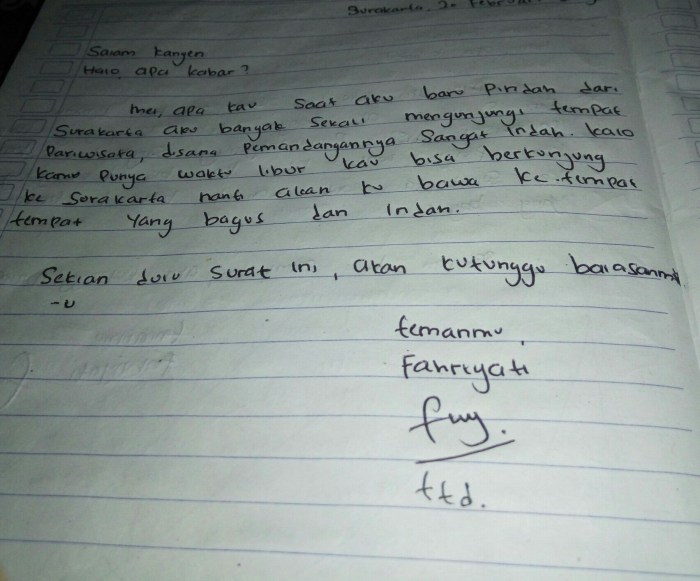 Surakarta, 20 Februari
Salam kangen
Halo, apa kabar?
mei, apa kau saat aku baru pindah dari
Surakarta aku banyak sekali mengunjungi tempat
Pariwisata, disana pemandangannya sangat indah. kalo
kamu punya waktu libur kau bisa berkunjung
ke Surakarta nanti akan ku bawa ke tempat
tempat yang bagus dan indah.
Sekian dulu surat ini, akan kutunggu balasanmu
-u
temanmu,
Fahriyati
ttd.